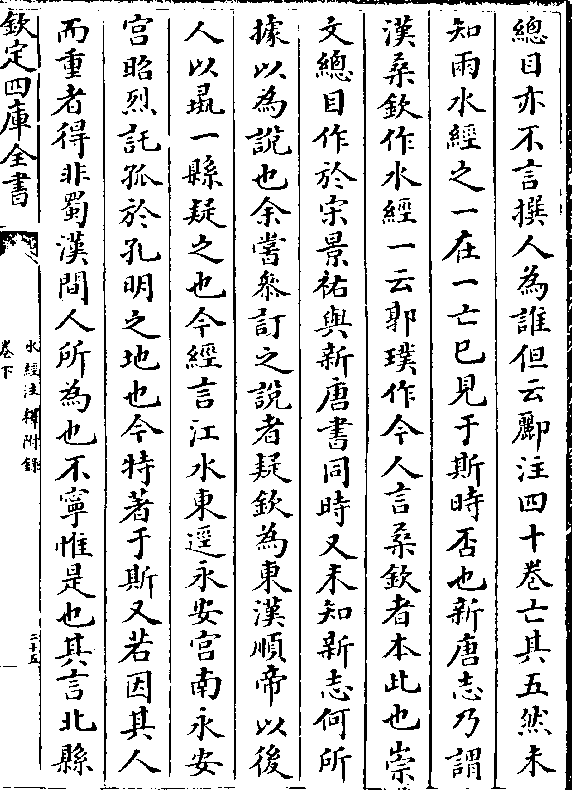 總目亦不言撰人為誰但云酈注四十巻亡其五然未
知兩水經之一在一亡已見于斯時否也新唐志乃謂
漢桑欽作水經一云郭璞作今人言桑欽者本此也崇
文總目作於宋景祐與新唐書同時又未知新志何所
據以為說也余嘗叅訂之說者疑欽為東漢順帝以後
人以一縣疑之也今經言江水東逕永安宫南永安
宫昭烈託孤於孔明之地也今特著于斯又若因其人
而重者得非蜀漢間人所為也不寧惟是也其言北縣
欽定四庫全書
水經注釋附錄
巻下
二十五